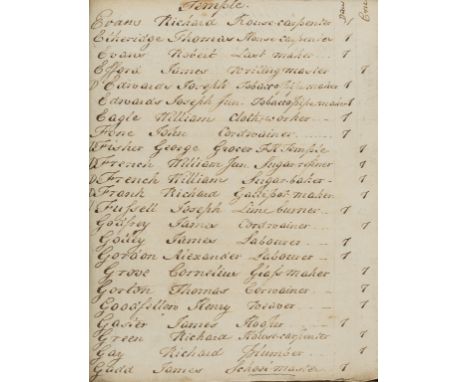 Temple.
Evans Richard House carpenter 1
Etheridge Thomas House carpenter 1
Evans Robert Last maker 1
Efford James Writing master 1
Edwards Joseph Tobacco pipe maker 1
Edwards Joseph Jun Tobacco pipe maker 1
Eagle William Clothworker 1
Fone John Cordwainer 1
Fisher George Grocer Temple 1
French William Jun Sugar refiner 1
French William Sugar baker 1
Frank Richard Gallipot maker 1
Fussell Joseph Lime burner 1
Godfrey James Cordwainer 1
Godby James Labourer 1
Gordon Alexander Labourer 1
Grove Cornelius Glass maker 1
Gorton Thomas Corwainer 1
Goodfellow Henry Weaver 1
Gasier James 1
Green Richard House carpenter 1
Gay Richard Plumber 1
Gadd James School master 1